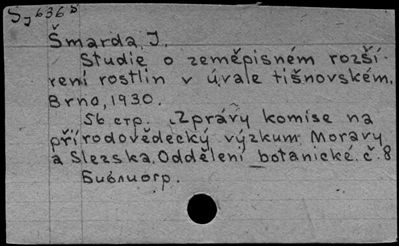 Sj636d
Šmarda, J.
Studie o zeměpisném rozší-
ření rostlin v úvale tišnovském.
Brno, 1930.
56 стр. „Zprávy komise na
přírodovědecký výzkum Moravy
a Slezska. Oddělení botanické. č. 8
Библиогр.